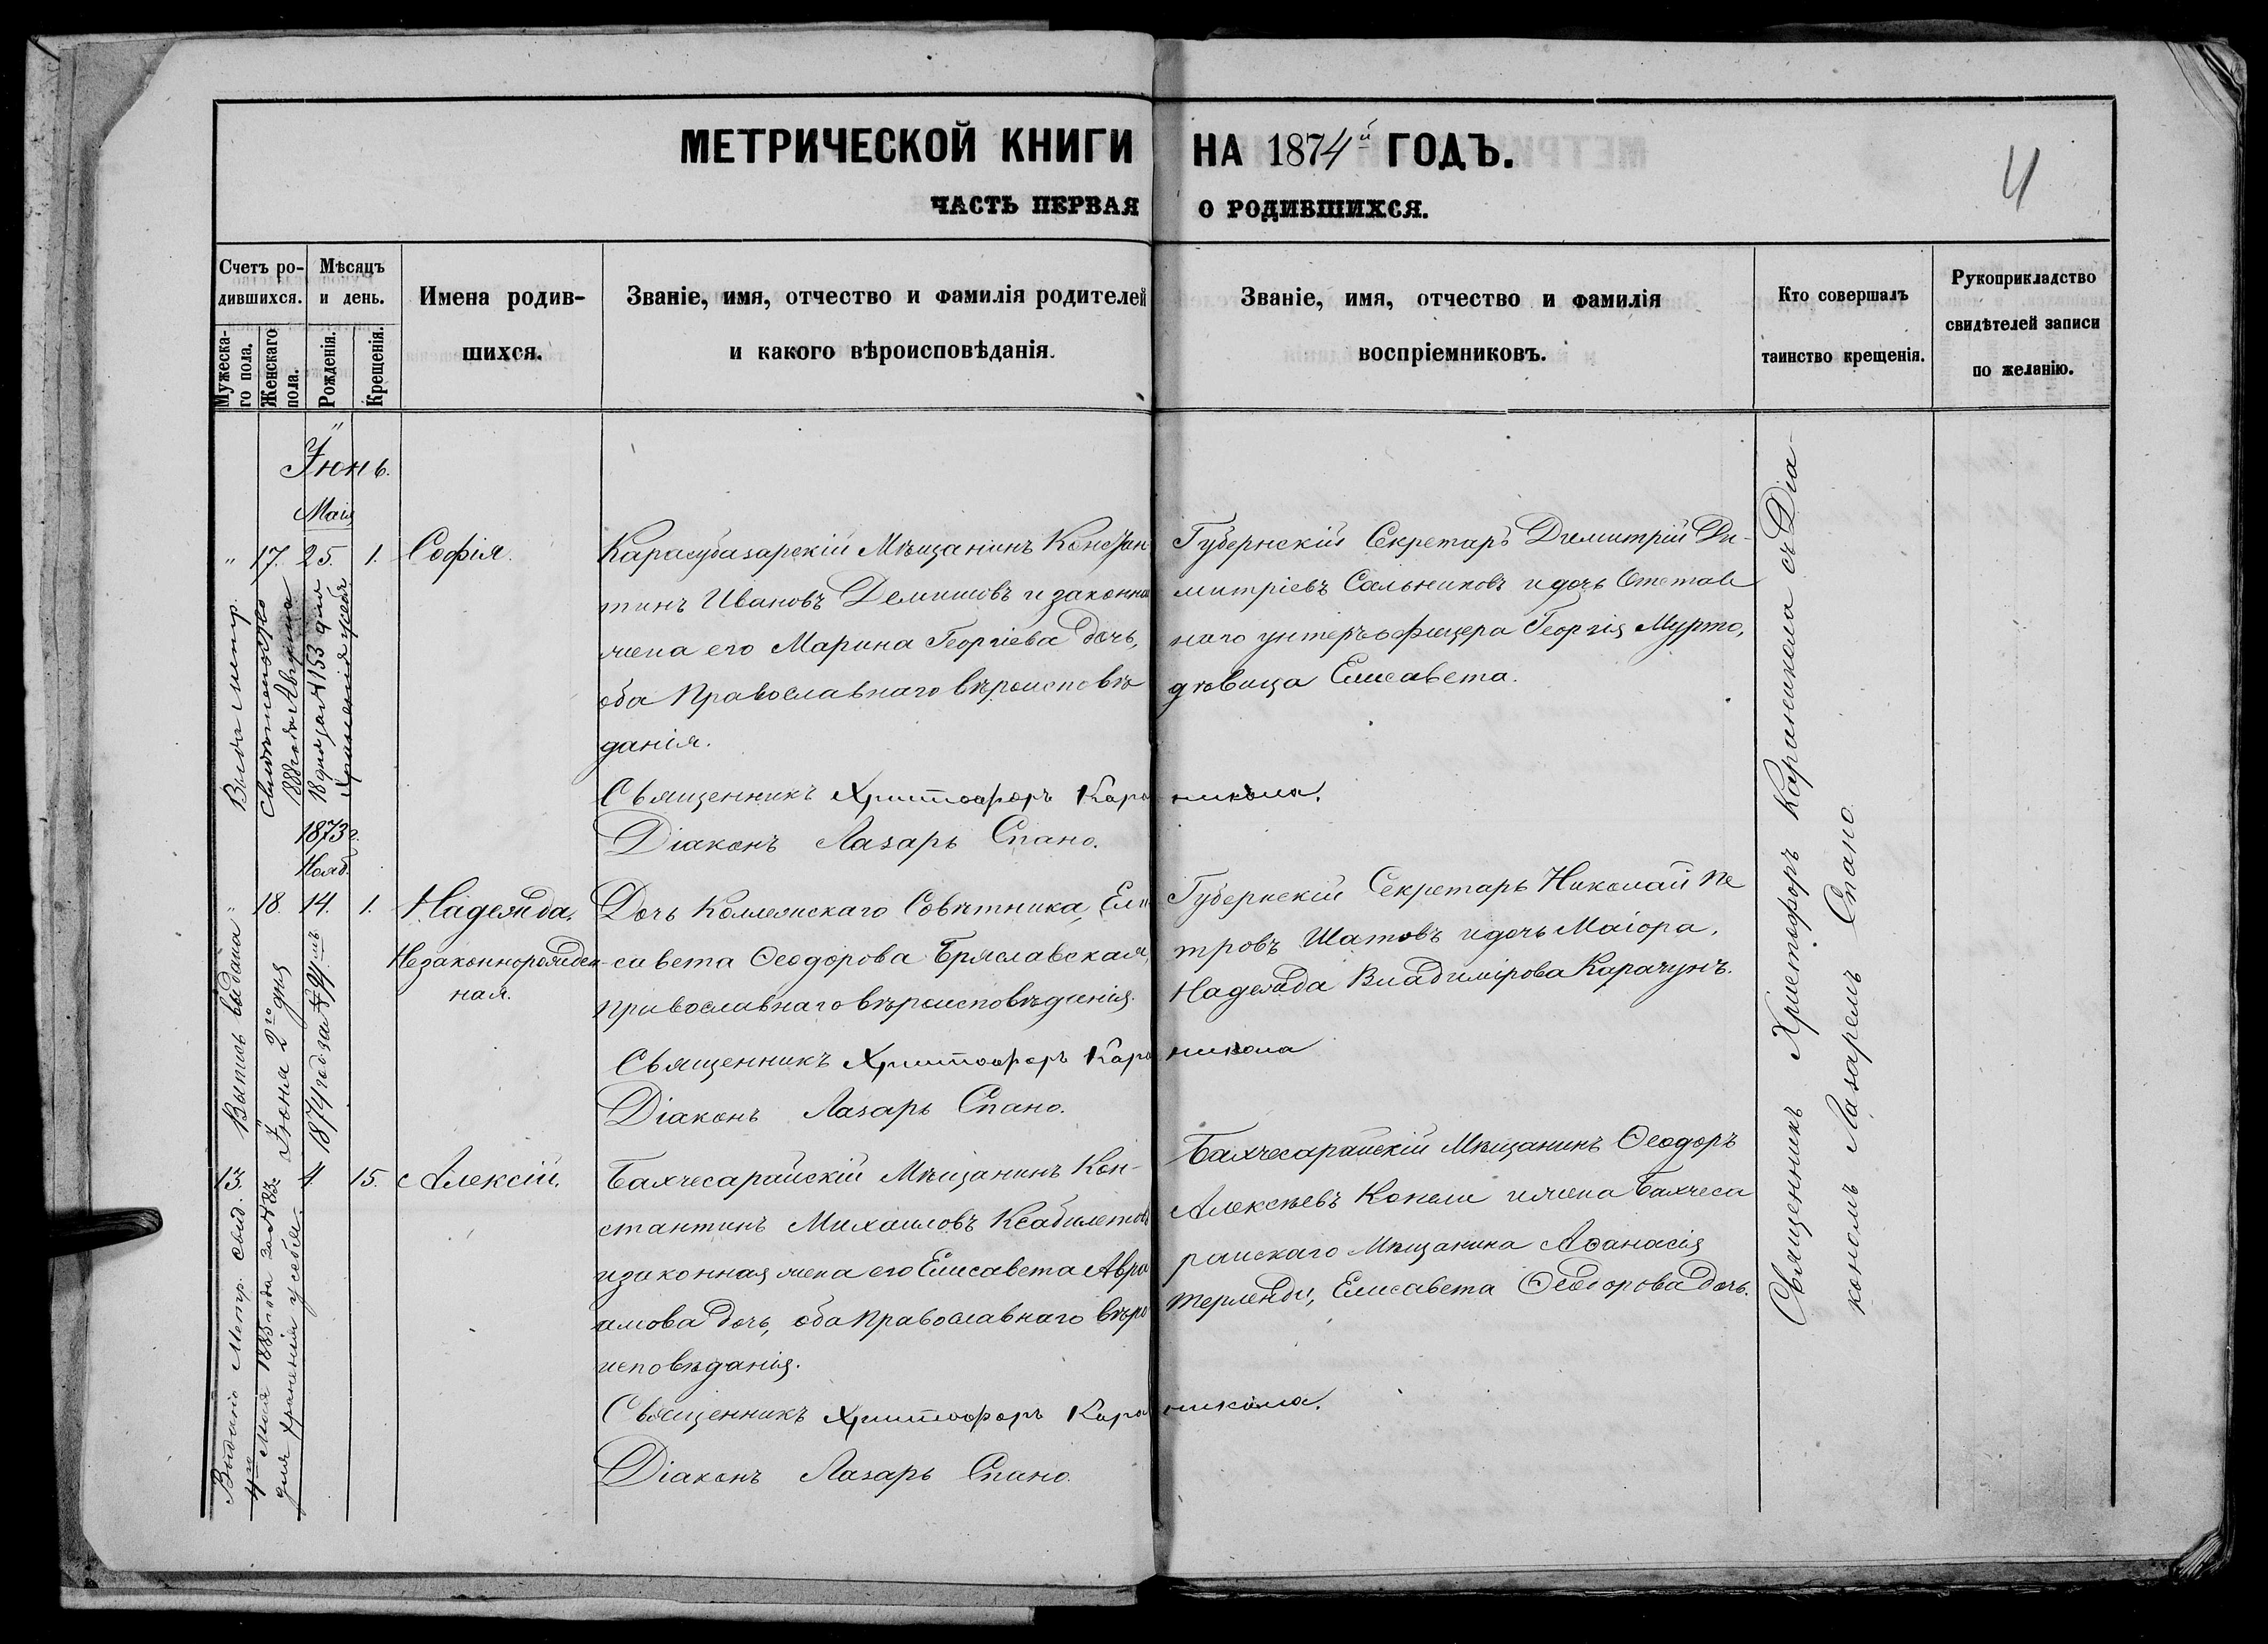 МЕТРИЧЕСКОЙ КНИГИ НА 1874й ГОДЪ.
4
ЧАСТЬ ПЕРВАЯ О РОДИВШИХСЯ.
Счетъ ро-
дившихся.
Мужеска-
го пола.
Женскаго
пола.
Мѣсяцъ
и день.
Рожденія.
Крещенія.
Имена родив-
шихся.
Званіе, имя, отчество и фамилія родителей
и какого вѣроисповѣданія.
Званіе, имя, отчество и фамилія
воспріемниковъ.
Кто совершалъ
таинство крещенія.
Рукоприкладство
свидѣтелей записи
по желанію.
Іюнь.
Маія
" 17. 25. 1. Софія.
Карасубазарскій Мѣщанинъ Констан
тинъ Ивановъ Демишовъ и законна
жена его Марина Георгіева дочь,
оба Православнаго вѣроисповѣ
данія.
Священникъ Христофоръ Кара никола.
Діаконъ Лазарь Спано.
Губернскій Секретарь Димитрій Ди-
митріевъ Сальниковъ и дочь Отстав
наго унтеръ офицера Георгія Мурто,
дѣвица Елисавета.
Выдана метр.
Свидѣтельство
1888 года Августа
18 дня за №153 для
храненія у себя
1873 г.
Нояб.
" 18. 14. 1. Надежда,
Незаконнорожден-
ная.
Дочь Коллежскаго Совѣтника, Ели
савета Ѳеодорова Бряславская,
православнаго вѣроисповѣданія.
Священникъ Христофоръ Кара никола
Діаконъ Лазарь Спано.
Губернскій Секретарь Николай Пе
тровъ Шатовъ и дочь Маіора,
Надежда Владимірова Карачунъ.
Выпись выдана
Іюня 2го дня
1874 годъ за №
13. 4. 15. Алексій.
Бахчесарайскій Мѣщанинъ Кон-
стантинъ Михаиловъ
и законная жена его Елисавета Авра
амова дочь, оба православнаго вѣро
исповѣданія.
Священникъ Христофоръ Кара никола.
Діаконъ Лазарь Спано.
Бахчесарайскій Мѣщанинъ Ѳеодоръ
Алексѣевъ и жена Бахчеса
райскаго Мѣщанина Аѳанасія
Терленди, Елисавета Ѳеодорова дочь.
Выдано Метр. свид.
4го Мая 1885 года за №83
для храненія у себя.
Священникъ Христофоръ Караникола съ Діа-
кономъ Лазаремъ Спано